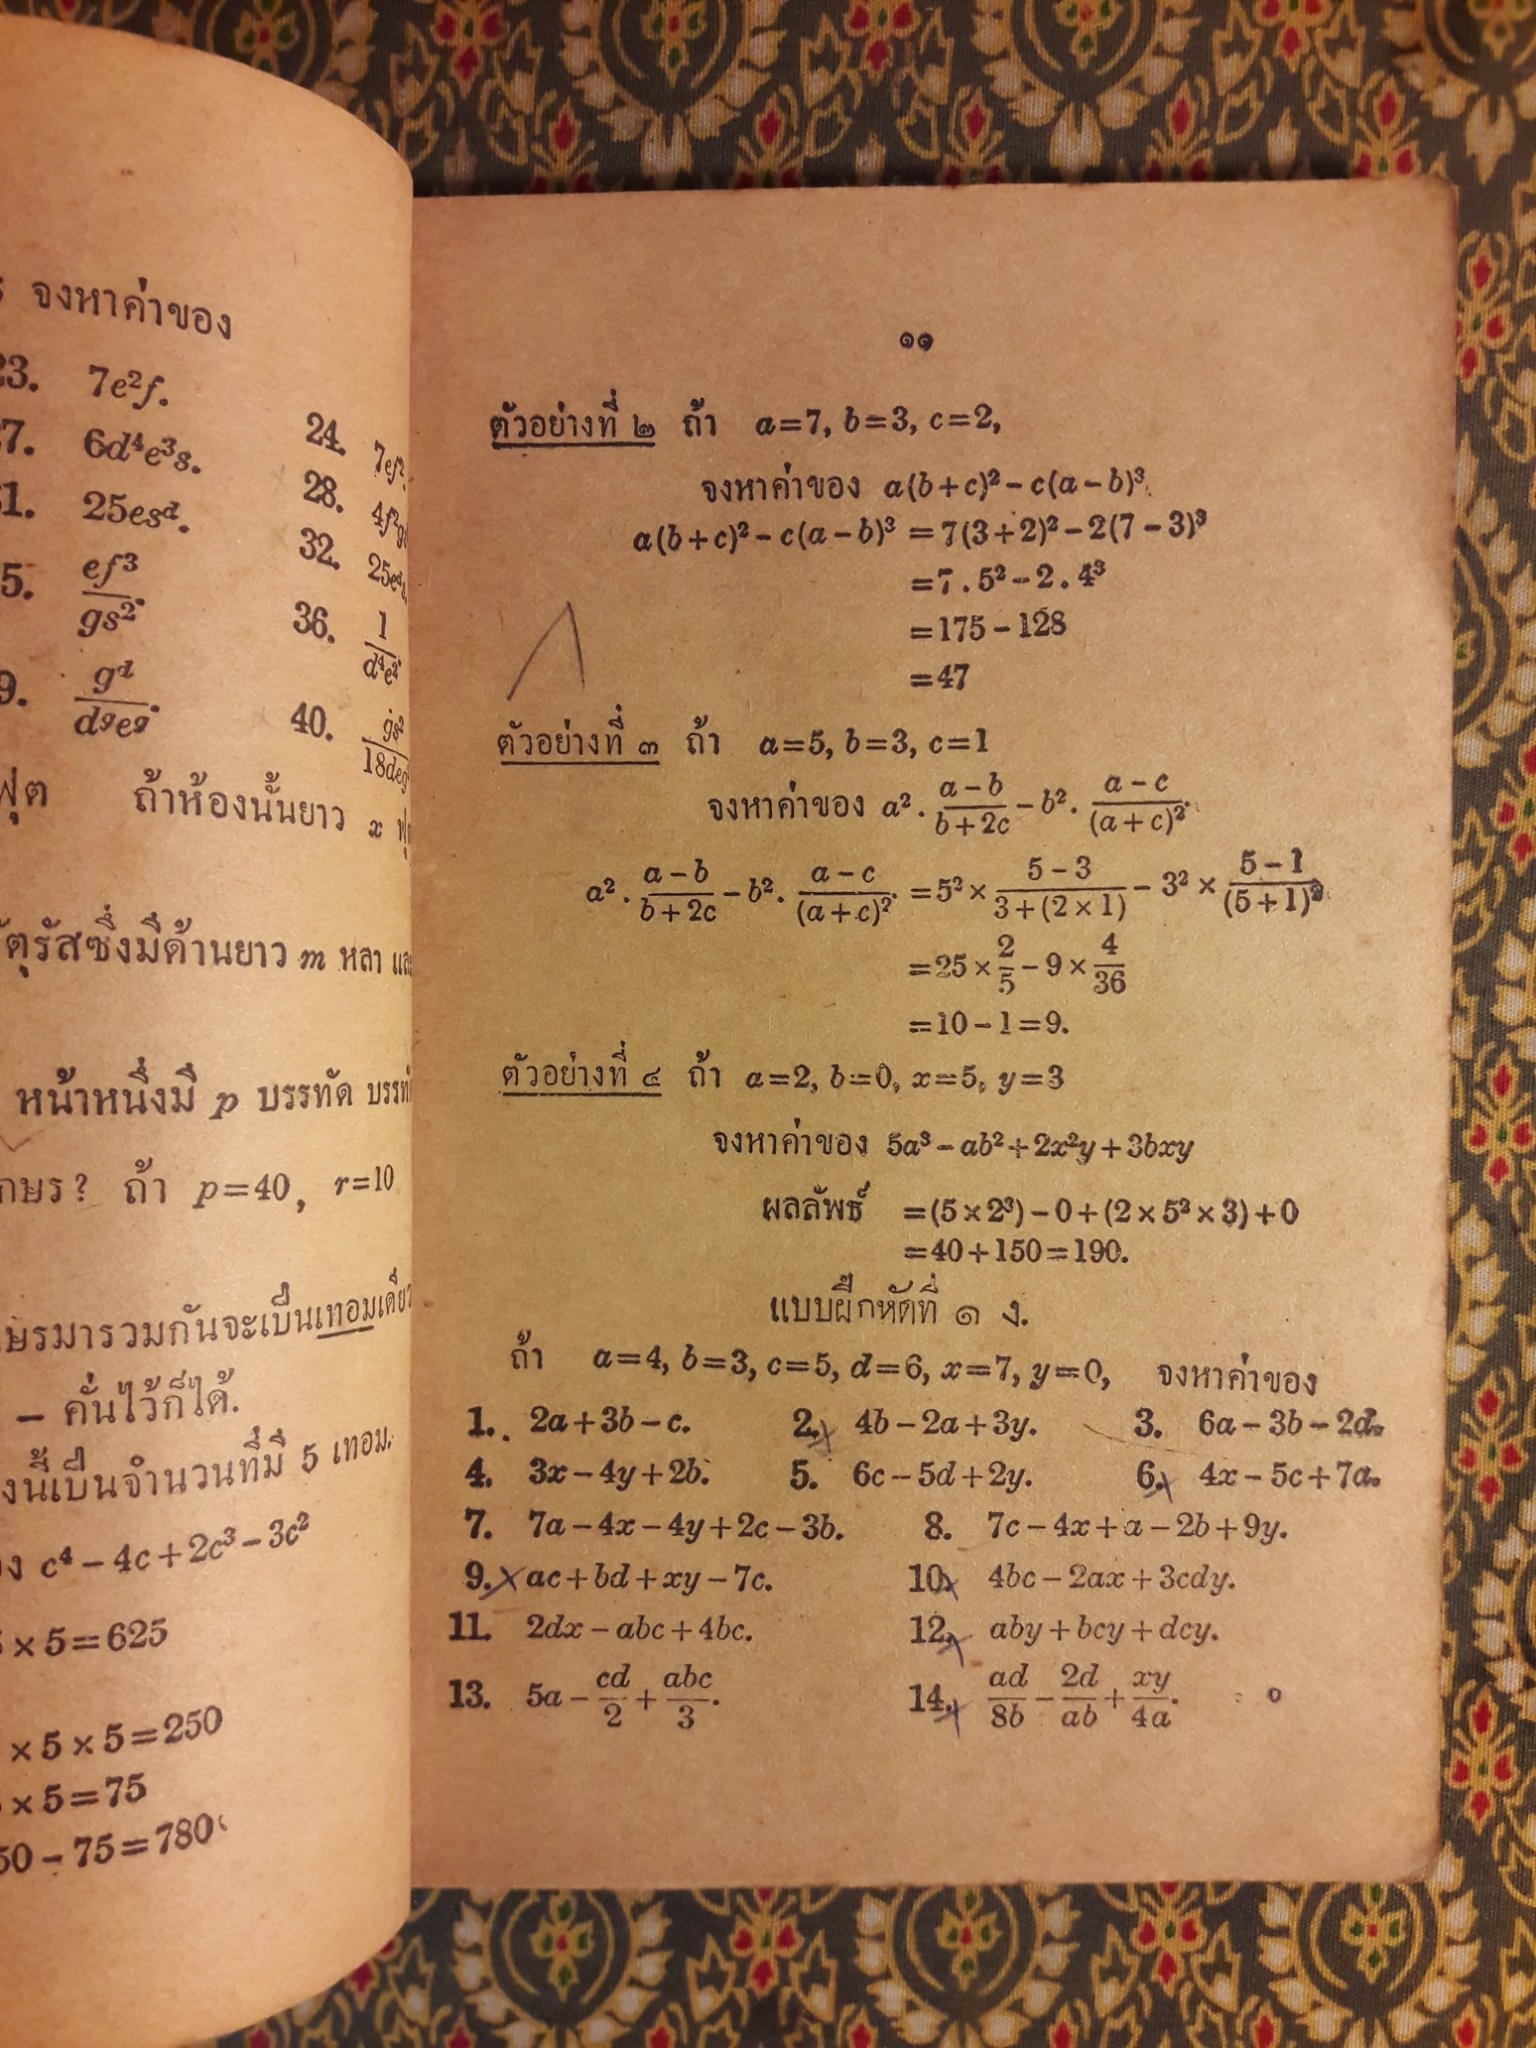 จงหาค่าของ
23. 7e²f.
24. 7ef².
6d⁴e³s.
28.
25esᵈ.
32.
ef³/gs².
36. 1/d⁴e².
gᵈ/dᵍeᵍ.
40.
ฟุต ถ้าห้องนั้นยาว x
ตุรัสซึ่งมีด้านยาว m หลา
หน้าหนึ่งมี p บรรทัด
ถ้า p=40, r=10
มารวมกันจะเป็นเทอมเดียว
– คั่นไว้ก็ได้.
เป็นจำนวนที่มี 5 เทอม.
c⁴-4c+2c³-3c²
×5=625
×5×5=250
×5=75
50-75=780
๑๑
ตัวอย่างที่ ๒ ถ้า a=7, b=3, c=2,
จงหาค่าของ a(b+c)²-c(a-b)³.
a(b+c)²-c(a-b)³ =7(3+2)²-2(7-3)³
=7.5²-2.4³
=175-128
=47
ตัวอย่างที่ ๓ ถ้า a=5, b=3, c=1
จงหาค่าของ a².(a-b)/(b+2c)-b².(a-c)/(a+c)².
a².(a-b)/(b+2c)-b².(a-c)/(a+c)². =5²×(5-3)/(3+(2×1))-3²×(5-1)/(5+1)²
=25×2/5-9×4/36
=10-1=9.
ตัวอย่างที่ ๔ ถ้า a=2, b=0, x=5, y=3
จงหาค่าของ 5a³-ab²+2x²y+3bxy
ผลลัพธ์ =(5×2³)-0+(2×5²×3)+0
=40+150=190.
แบบฝึกหัดที่ ๑ ง.
ถ้า a=4, b=3, c=5, d=6, x=7, y=0, จงหาค่าของ
1. 2a+3b-c. 2. 4b-2a+3y. 3. 6a-3b-2d.
4. 3x-4y+2b. 5. 6c-5d+2y. 6. 4x-5c+7a.
7. 7a-4x-4y+2c-3b. 8. 7c-4x+a-2b+9y.
9. ac+bd+xy-7c. 10. 4bc-2ax+3cdy.
11. 2dx-abc+4bc. 12. aby+bcy+dcy.
13. 5a-cd/2+abc/3. 14. ad/8b-2d/ab+xy/4a. = 0